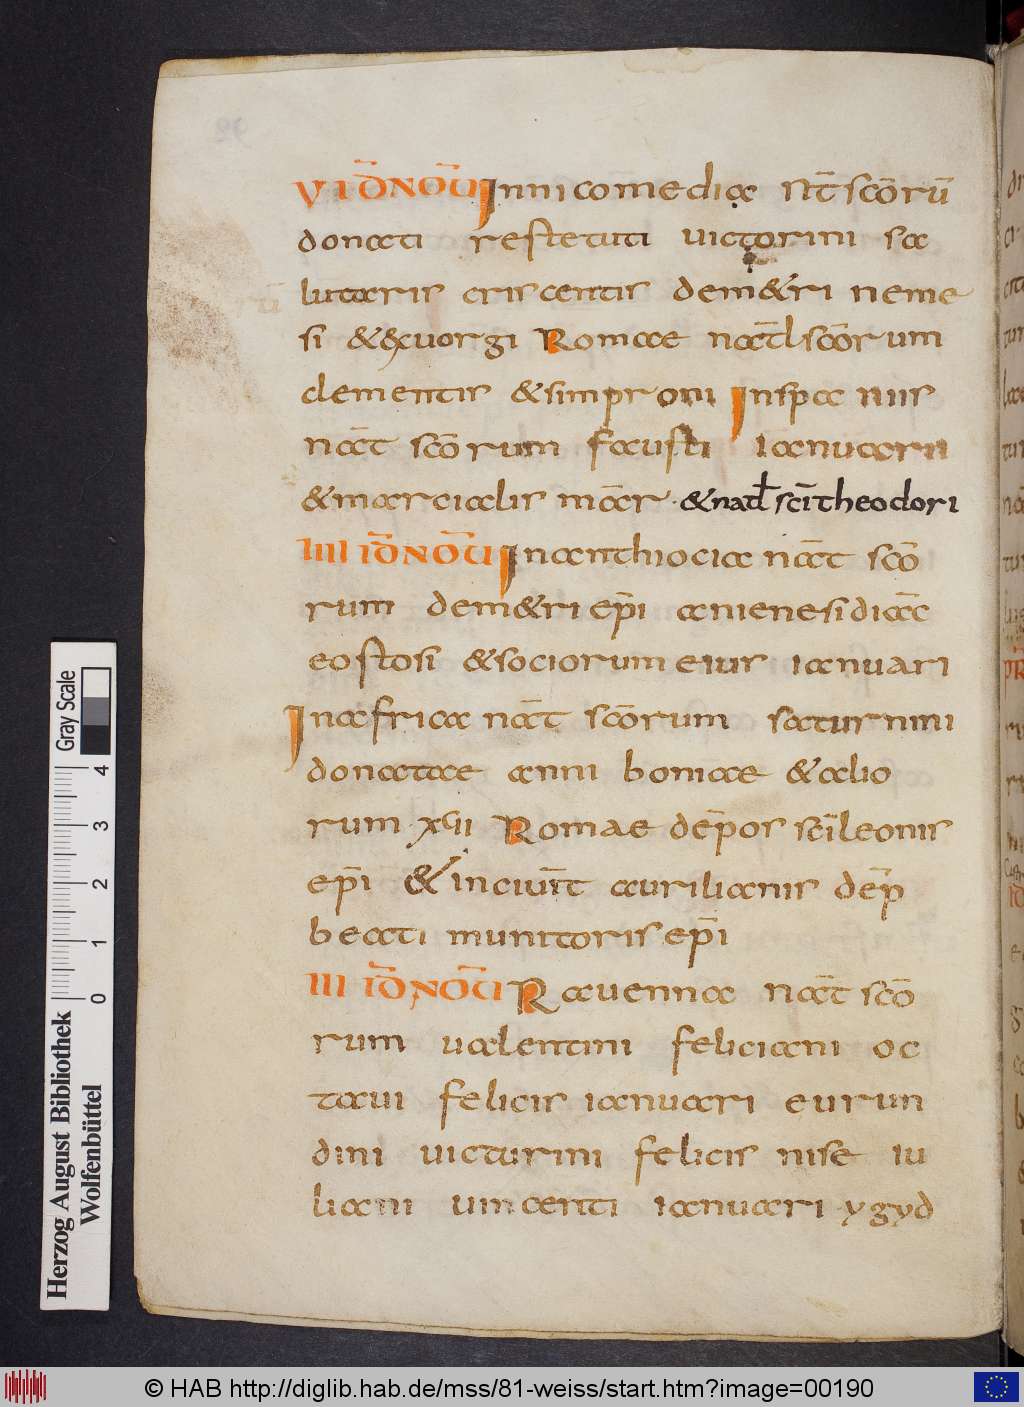 VI ID̄ NOṼ Inni comediae N̄T sc̄orū
donati restetuti uictorini sa
lutaris criscentis demetri neme
si & exuorgi Romae nat̄l sc̄orum
clementis & simproni In spa niis
nat̄ sc̄orum fausti Ianuarii
& marcialis mar̄ & nat̄l sc̄i theodori
IIII ID̄ NOṼ In anthiocia nat̄ sc̄o
rum demetri ep̄i anienesi diac̄
eostosi & sociorum eius ianuari
In africa nat̄ sc̄orum saturnini
donatae anni boniae & alio
rum xvii Romae dep̄os sc̄i leonis
ep̄i & in ciuīt aurilianis dep̄
beati munitoris ep̄i
III ID̄ NOṼ Rauenna nat̄ sc̄o
rum ualentini feliciani oc
taui felicis ianuari eurun
dini uicturini felicis nise iu
liani uincenti ianuari ygyd
92
Gray Scale
0 1 2 3 4
Herzog August Bibliothek
Wolfenbüttel
© HAB http://diglib.hab.de/mss/81-weiss/start.htm?image=00190